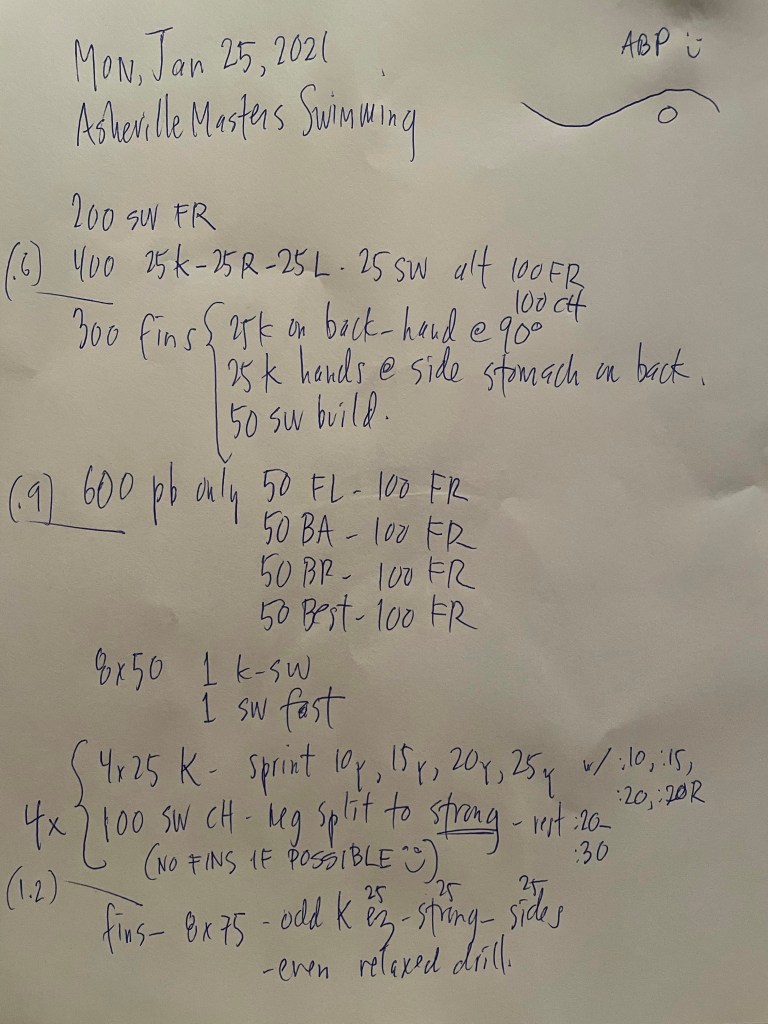 Mon, Jan 25, 2021
ABP
Asheville Masters Swimming
200 SW FR
(.6) 400 25K-25R-25L-25 SW alt 100 FR
100 CH
300 fins { 25K on back-hand @ 90°
25 K hands @ side stomach on back.
50 SW build.
(.9) 600 pb only 50 FL - 100 FR
50 BA - 100 FR
50 BR - 100 FR
50 Best - 100 FR
8x50 1 K-SW
1 SW fast
4x { 4x25 K - sprint 10y, 15y, 20y, 25y w/ :10, :15,
:20, :20R
100 SW CH - neg split to strong - rest :20-
:30
(NO FINS IF POSSIBLE)
(1.2)
fins - 8x75 - odd K 25 ez - 25 strong - 25 sides
- even relaxed drill.